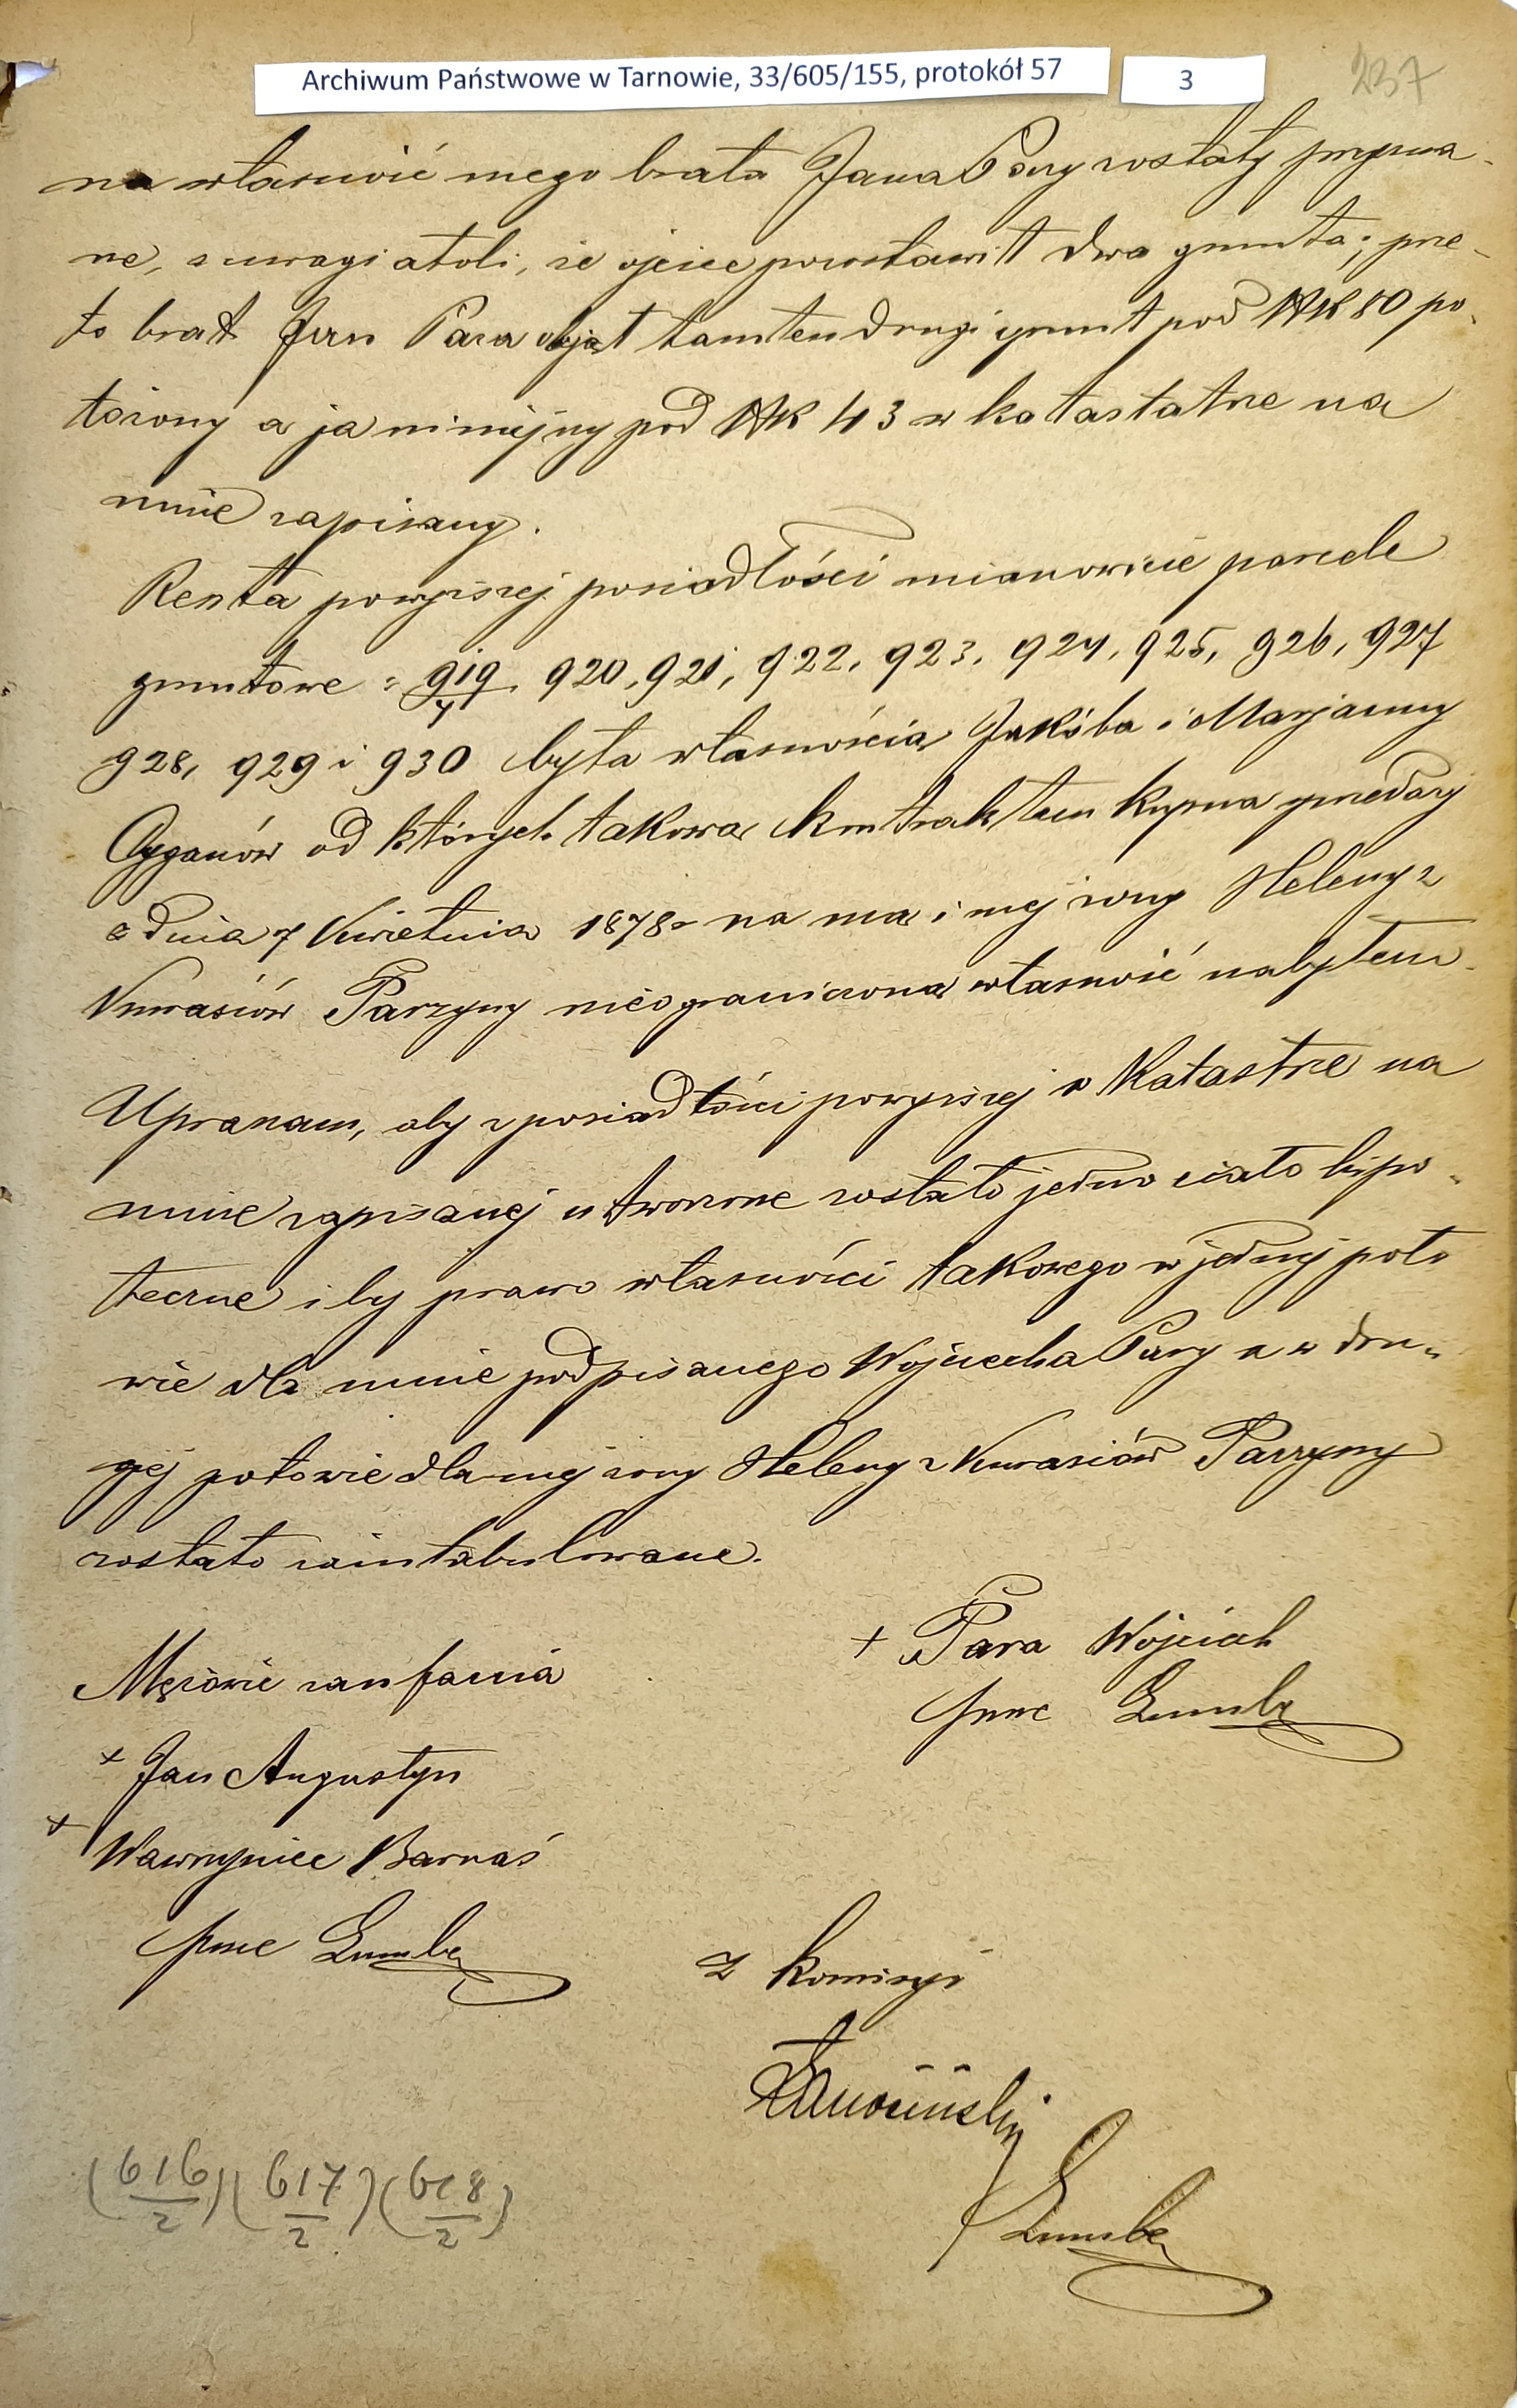 Archiwum Państwowe w Tarnowie, 33/605/155, protokół 57
3
237
na własność mego brata Jana Pary zostały przyzna-
ne, z uwagi atoli, że ojciec pozostawił dwa grunta; prze-
to brat Jan Para objął tamten drugi grunt pod NK 80 po-
łożony a ja niniejszy pod NK 43 w katastrze na
mnie zapisany.
Reszta powyższej posiadłości mianowicie parcele
gruntowe: 919/4 920, 921, 922, 923, 924, 925, 926, 927
928, 929 i 930 była własnością Jakóba i Marjanny
Cyganów od których takową kontraktem kupna sprzedaży
z dnia 7 Kwietnia 1878 na mą i mej żony Heleny z
Kurasiów Parzyny nieograniczoną własność nabyłem.
Upraszam, aby z posiadłości powyższej w Katastrze na
mnie zapisanej utworzone zostało jedno ciało hipo-
teczne i by prawo własności takowego w jednej poło
wie dla mnie podpisanego Wojciecha Pary a w dru-
giej połowie dla mej żony Heleny z Kurasiów Parzyny
zostało zaintabulowane.
+ Para Wojciech
Mężowie zaufania
+ Jan Augustyn
+ Wawrzyniec Barnaś
Z komisyi
(616/2)(617/2)(618/2)